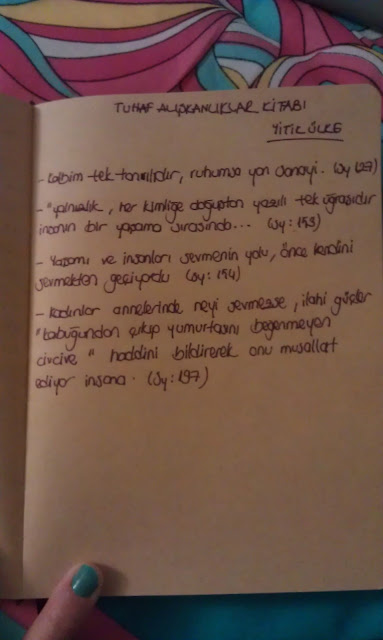 TUHAF ALIŞKANLIKLAR KİTABI
YİTİK ÜLKE
- Kalbim tek tanrılıdır, ruhumsa yan sanayi. (sy 127)
- "yalnızlık, her kimliğe doğuştan yazılı tek uğraşıdır
insanın bir yaşama sırasında... (sy: 153)
- Yaşamı ve insanları sevmenin yolu, önce kendini
sevmekten geçiyordu (sy: 154)
- Kadınlar annelerinde neyi sevmezse, ilahi güçler
"kabuğundan çıkıp yumurtasını beğenmeyen
civcive" haddini bildirerek onu musallat
ediyor insana. (sy: 197)